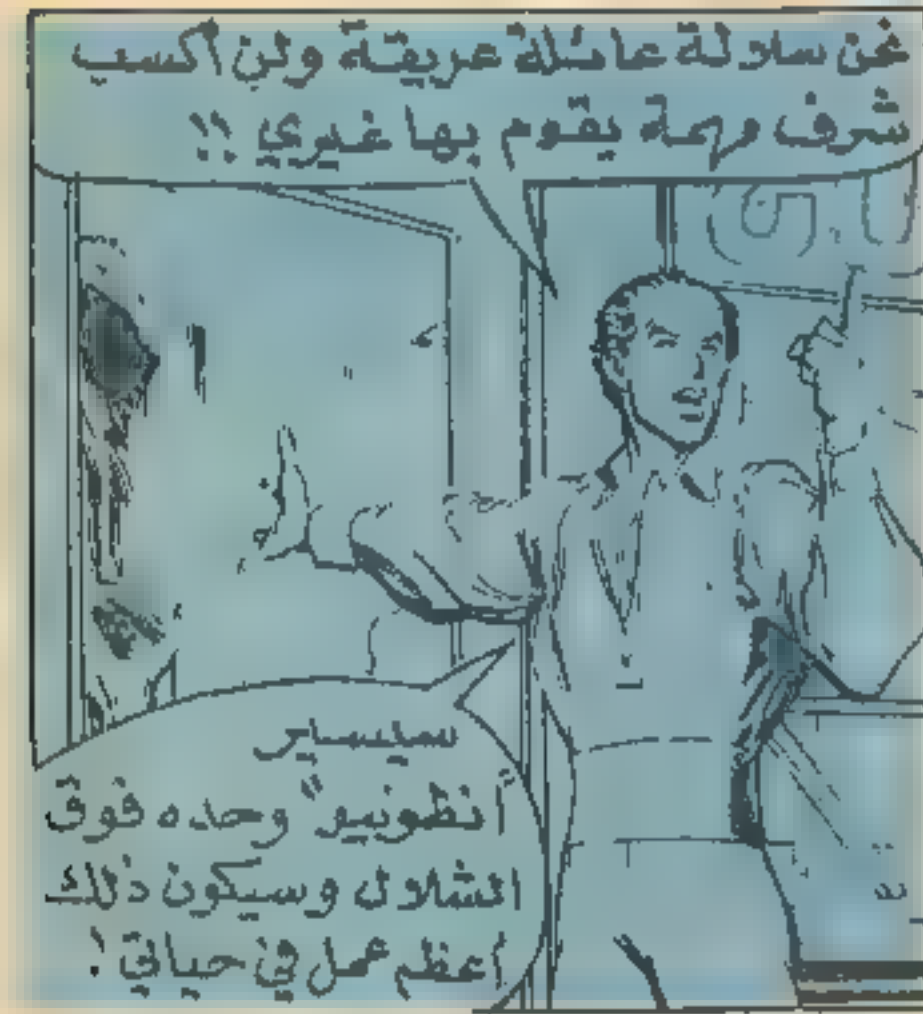 نحن سلالة عائلة عريقة ولن أكسب
شرف مهمة يقوم بها غيري !!
سيسير
"أنطونيو" وحده فوق
الشلال وسيكون ذلك
أعظم عمل في حياتي !